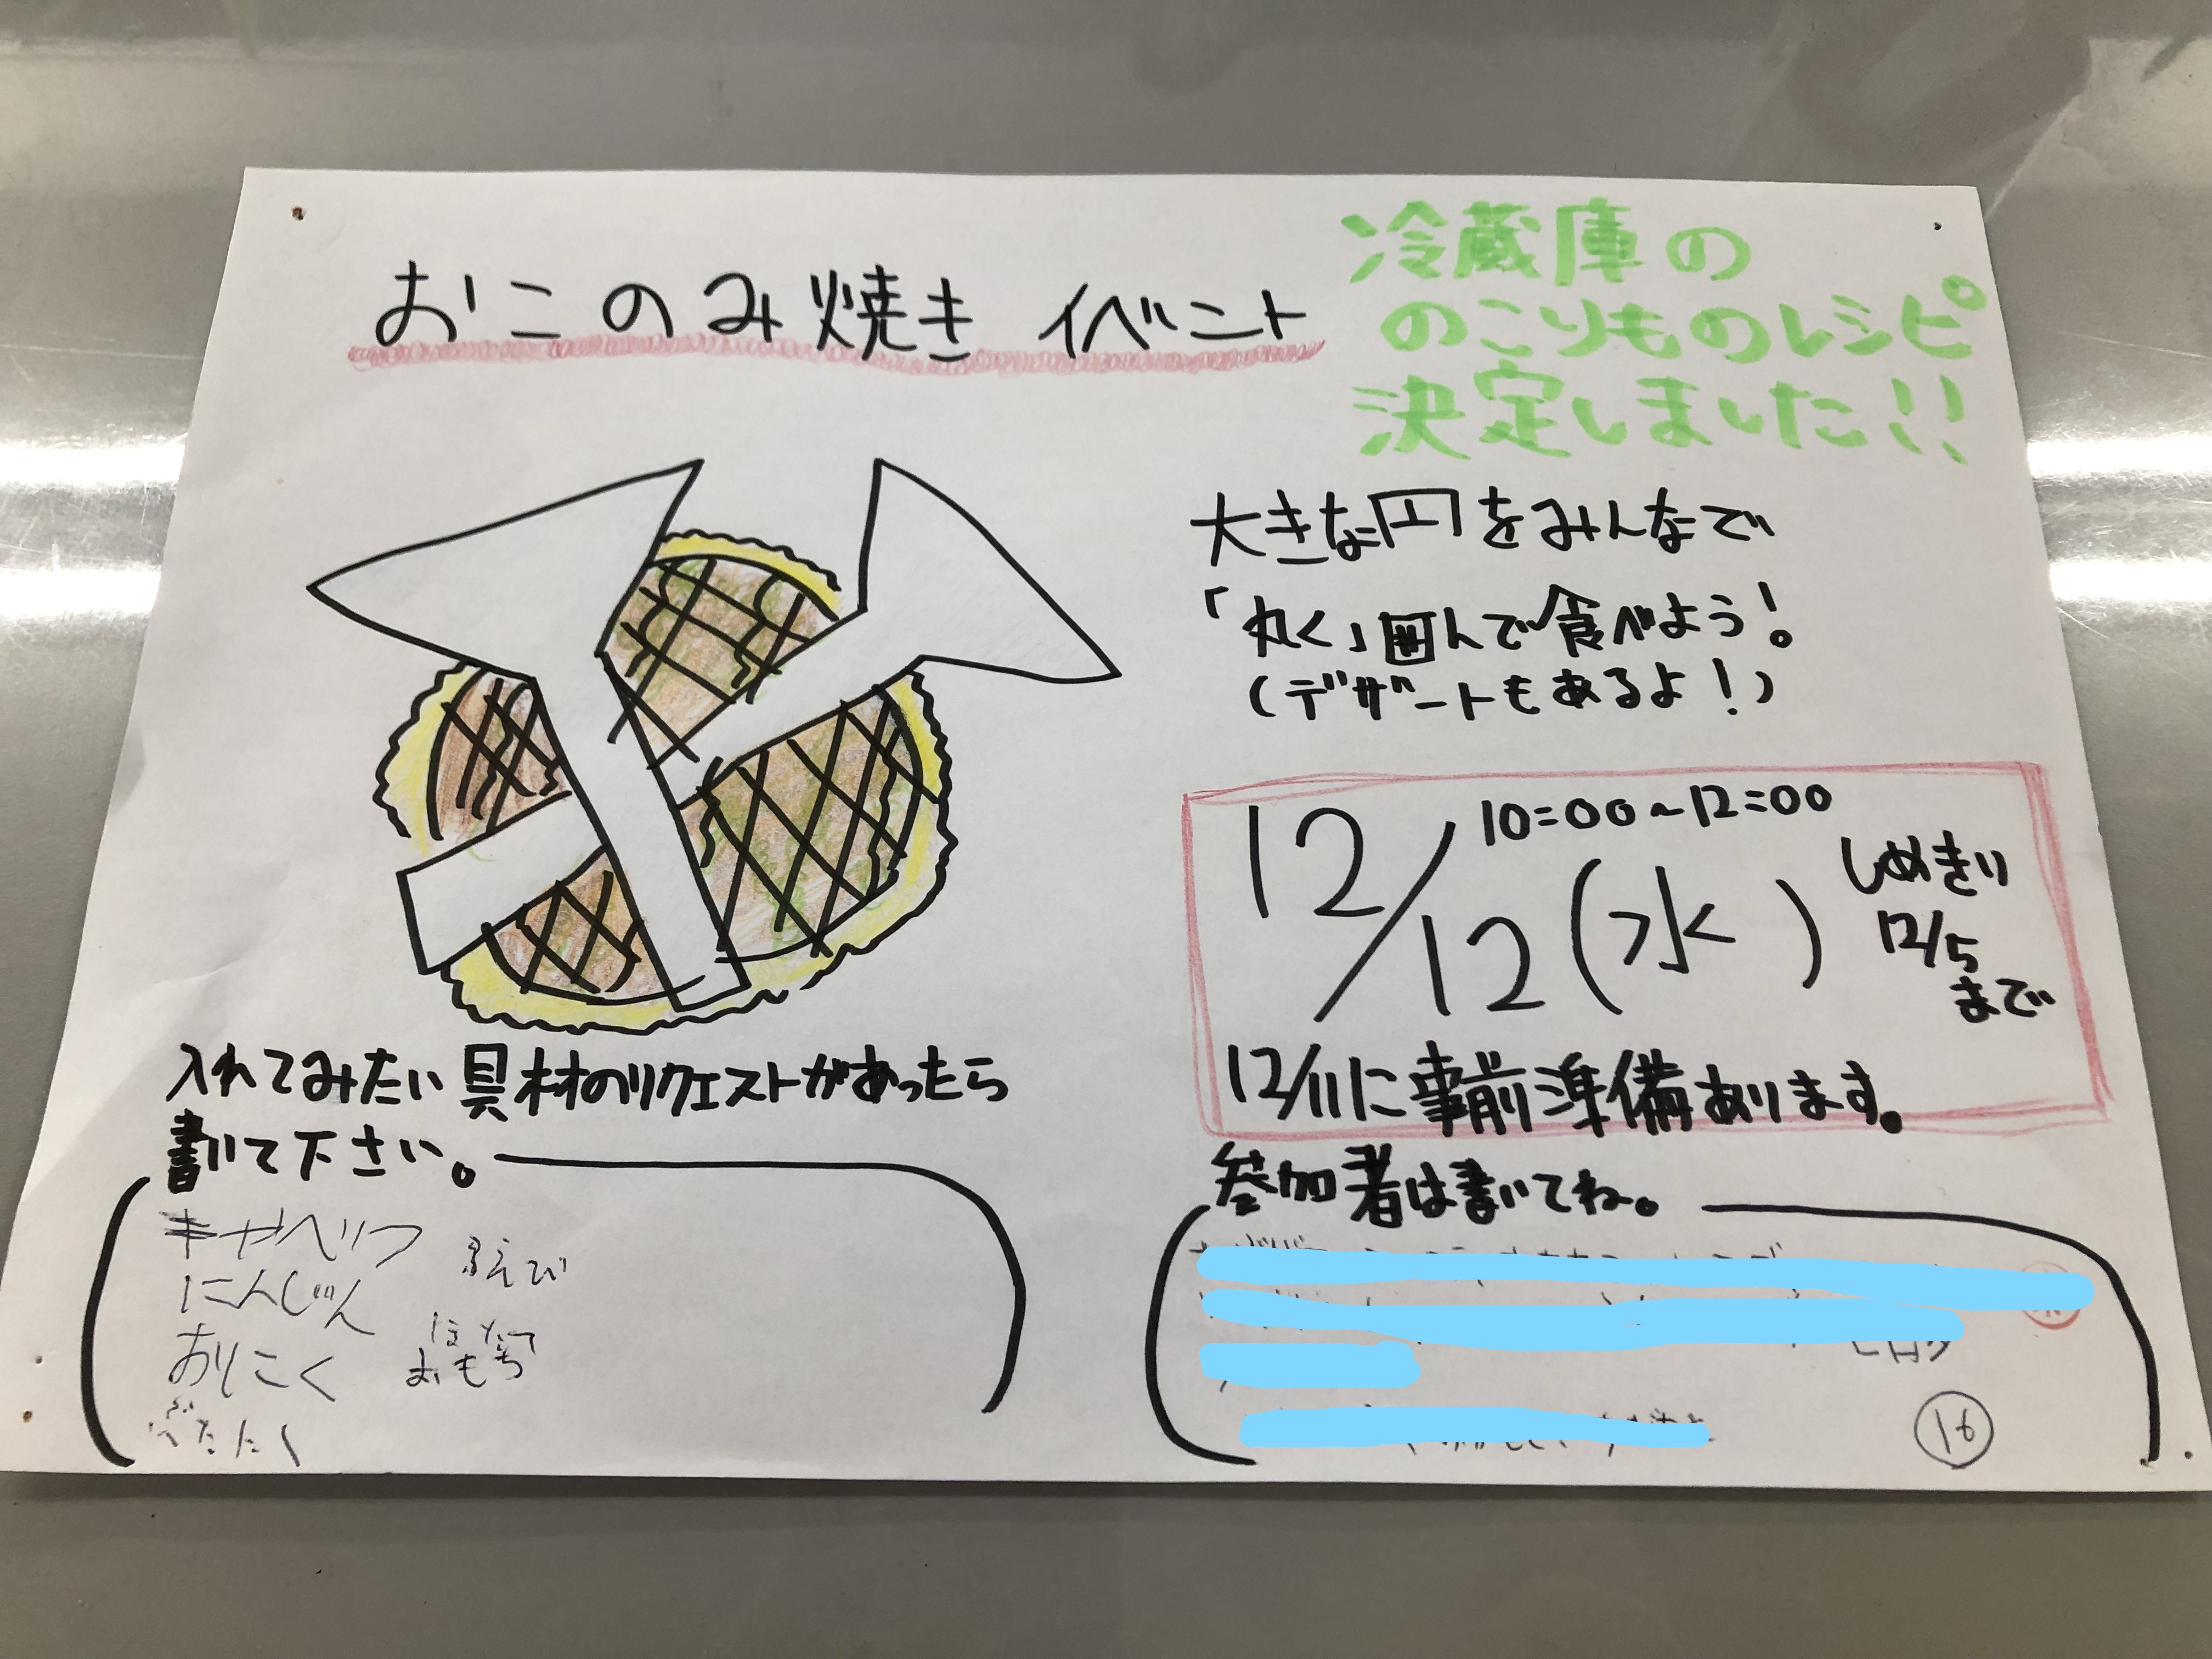 おこのみ焼き イベント
冷蔵庫の
のこりものレシピ
決定しました!!
大きな円をみんなで
「丸く」囲んで食べよう!
(デザートもあるよ!)
10:00~12:00
12/12(水)
しめきり
12/5
まで
12/11に事前準備あります。
入れてみたい具材のリクエストがあったら
書いて下さい。
キャベツ
にんじん
おにく
えび
ほたて
おもち
参加者は書いてね。
16